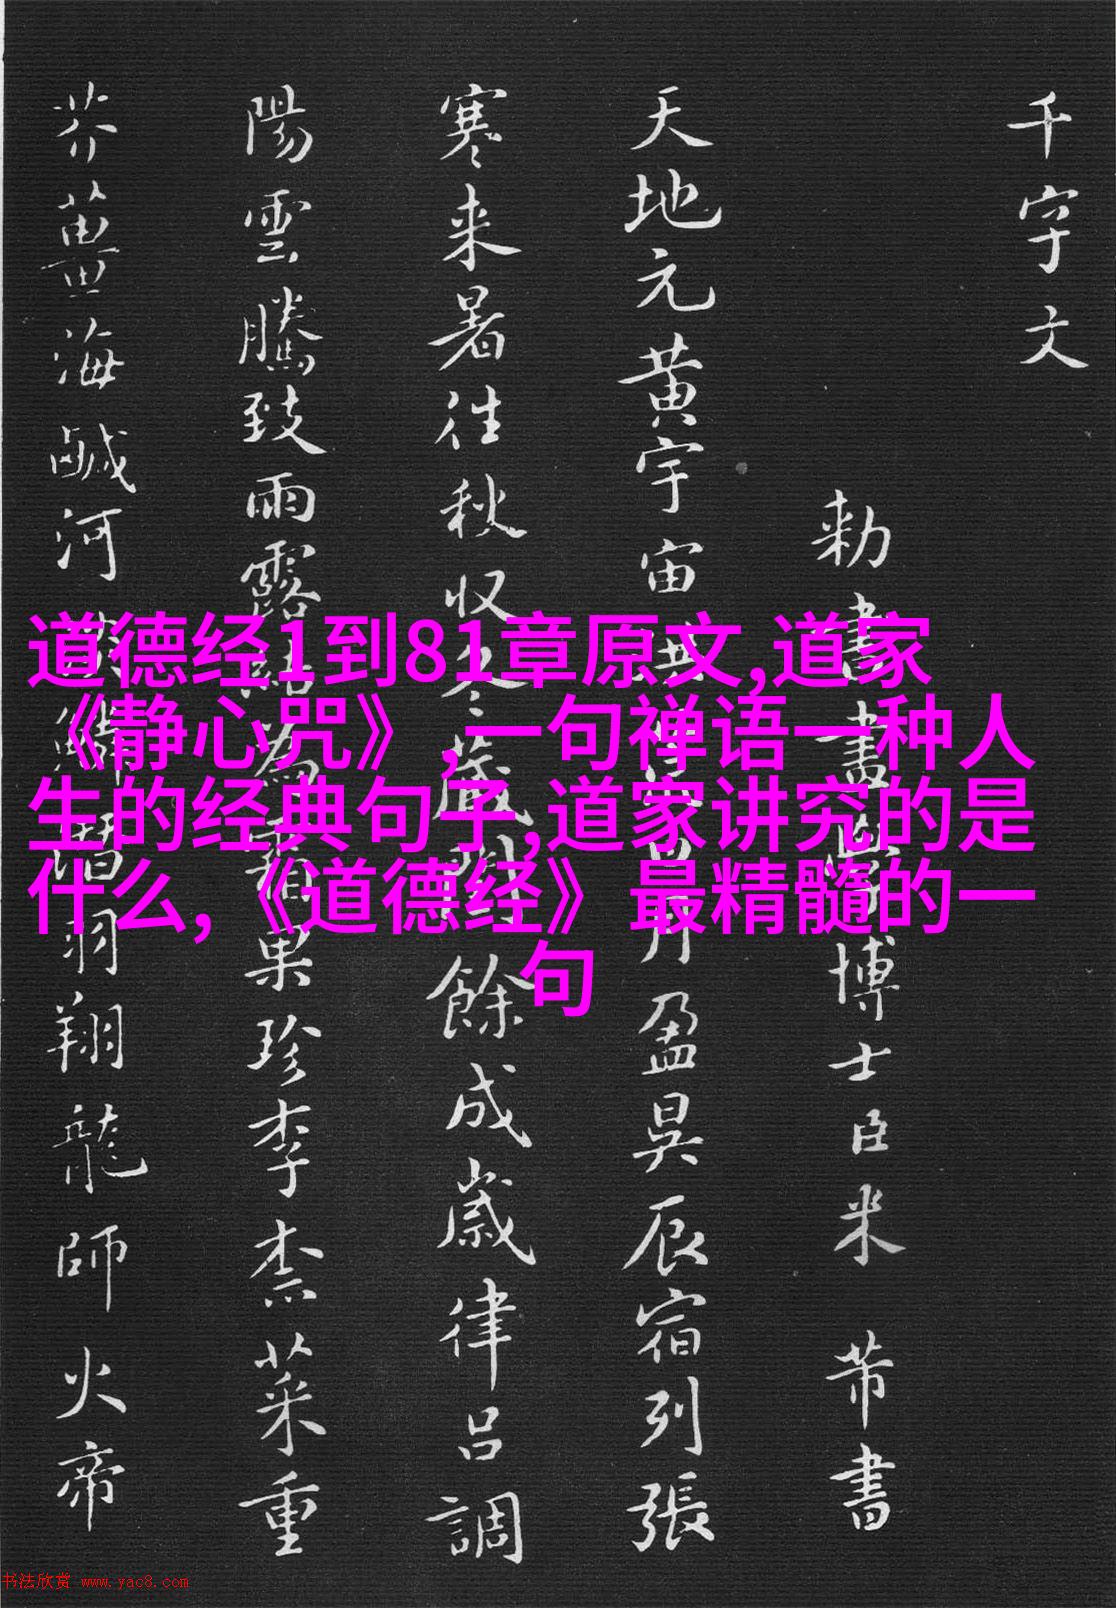 千字文
勅書畫學博士臣米芾書
天地元黄宇宙洪荒日月盈昃辰宿列張
寒来暑往秋収冬藏閏餘成歲律吕調
陽雲騰致雨露結為霜果珍李柰菜重
芥薑海鹹河淡鱗潛羽翔龍師火帝
道德经1到81章原文,道家
《静心咒》,一句禅语一种人
生的经典句子,道家讲究的是
什么,《道德经》最精髓的一
句
书法欣赏 www.yac8.com